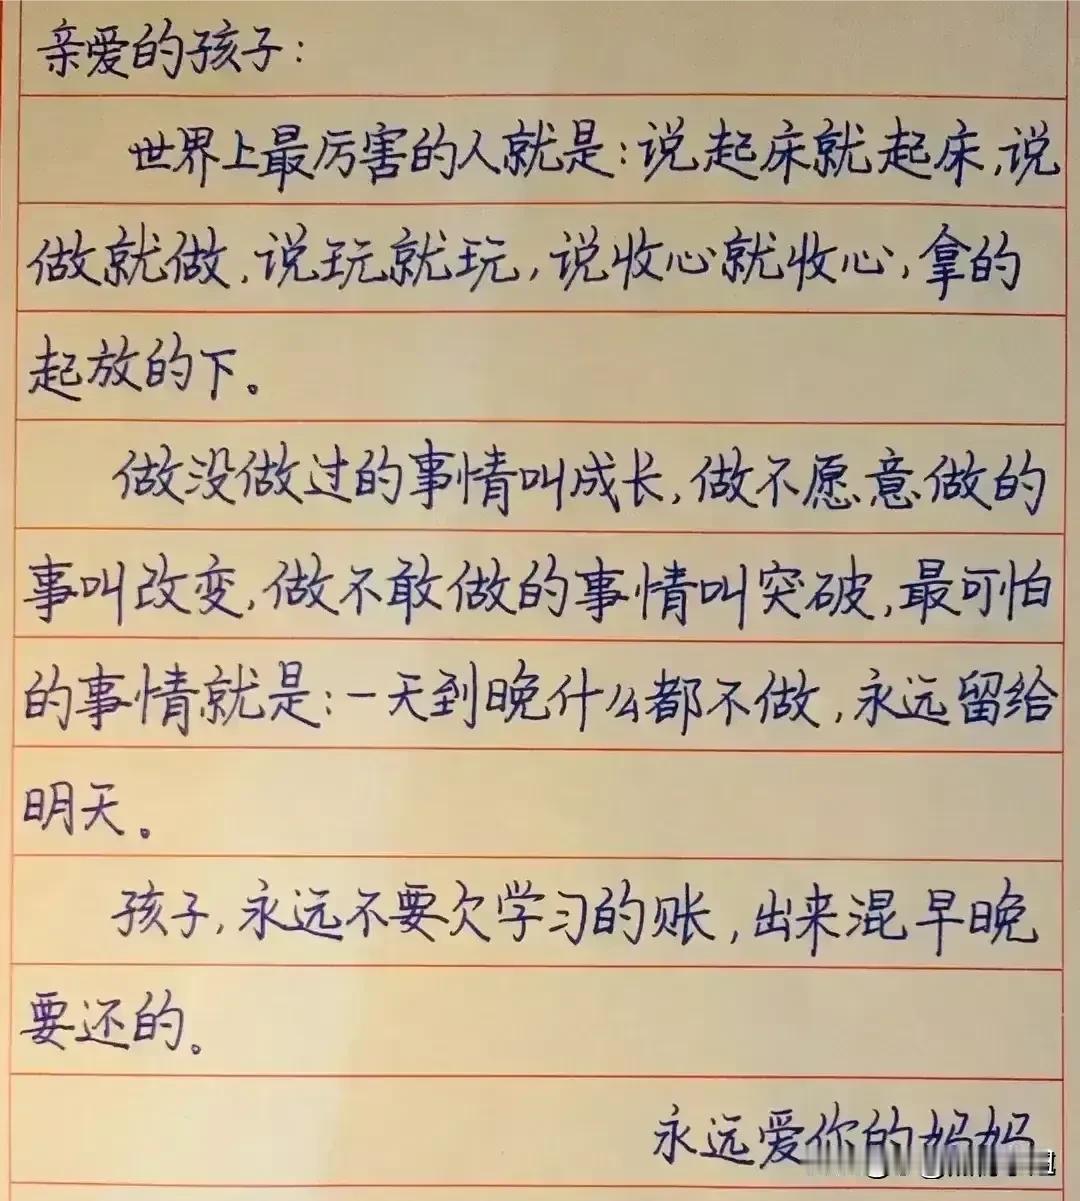 亲爱的孩子:
世界上最厉害的人就是:说起床就起床,说
做就做,说玩就玩,说收心就收心,拿的
起放的下。
做没做过的事情叫成长,做不愿意做的
事叫改变,做不敢做的事情叫突破,最可怕
的事情就是:一天到晚什么都不做,永远留给
明天。
孩子,永远不要欠学习的账,出来混早晚
要还的。
永远爱你的妈妈